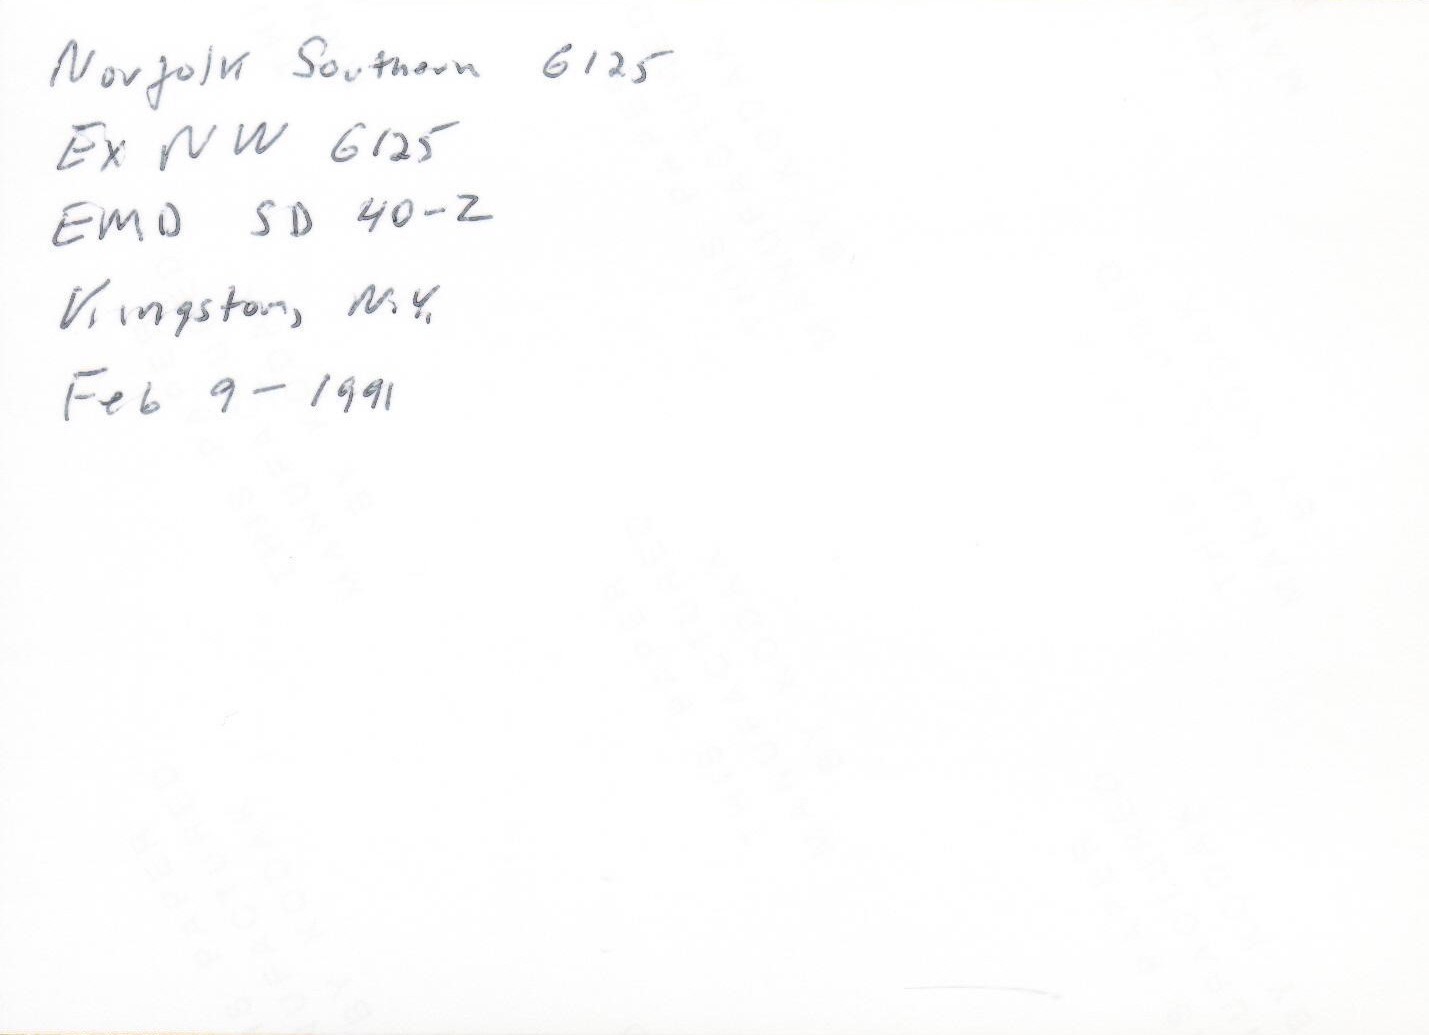 Norfolk Southern 6125
Ex NW 6125
EMD SD 40-2
Kingston, N.Y.
Feb 9-1991